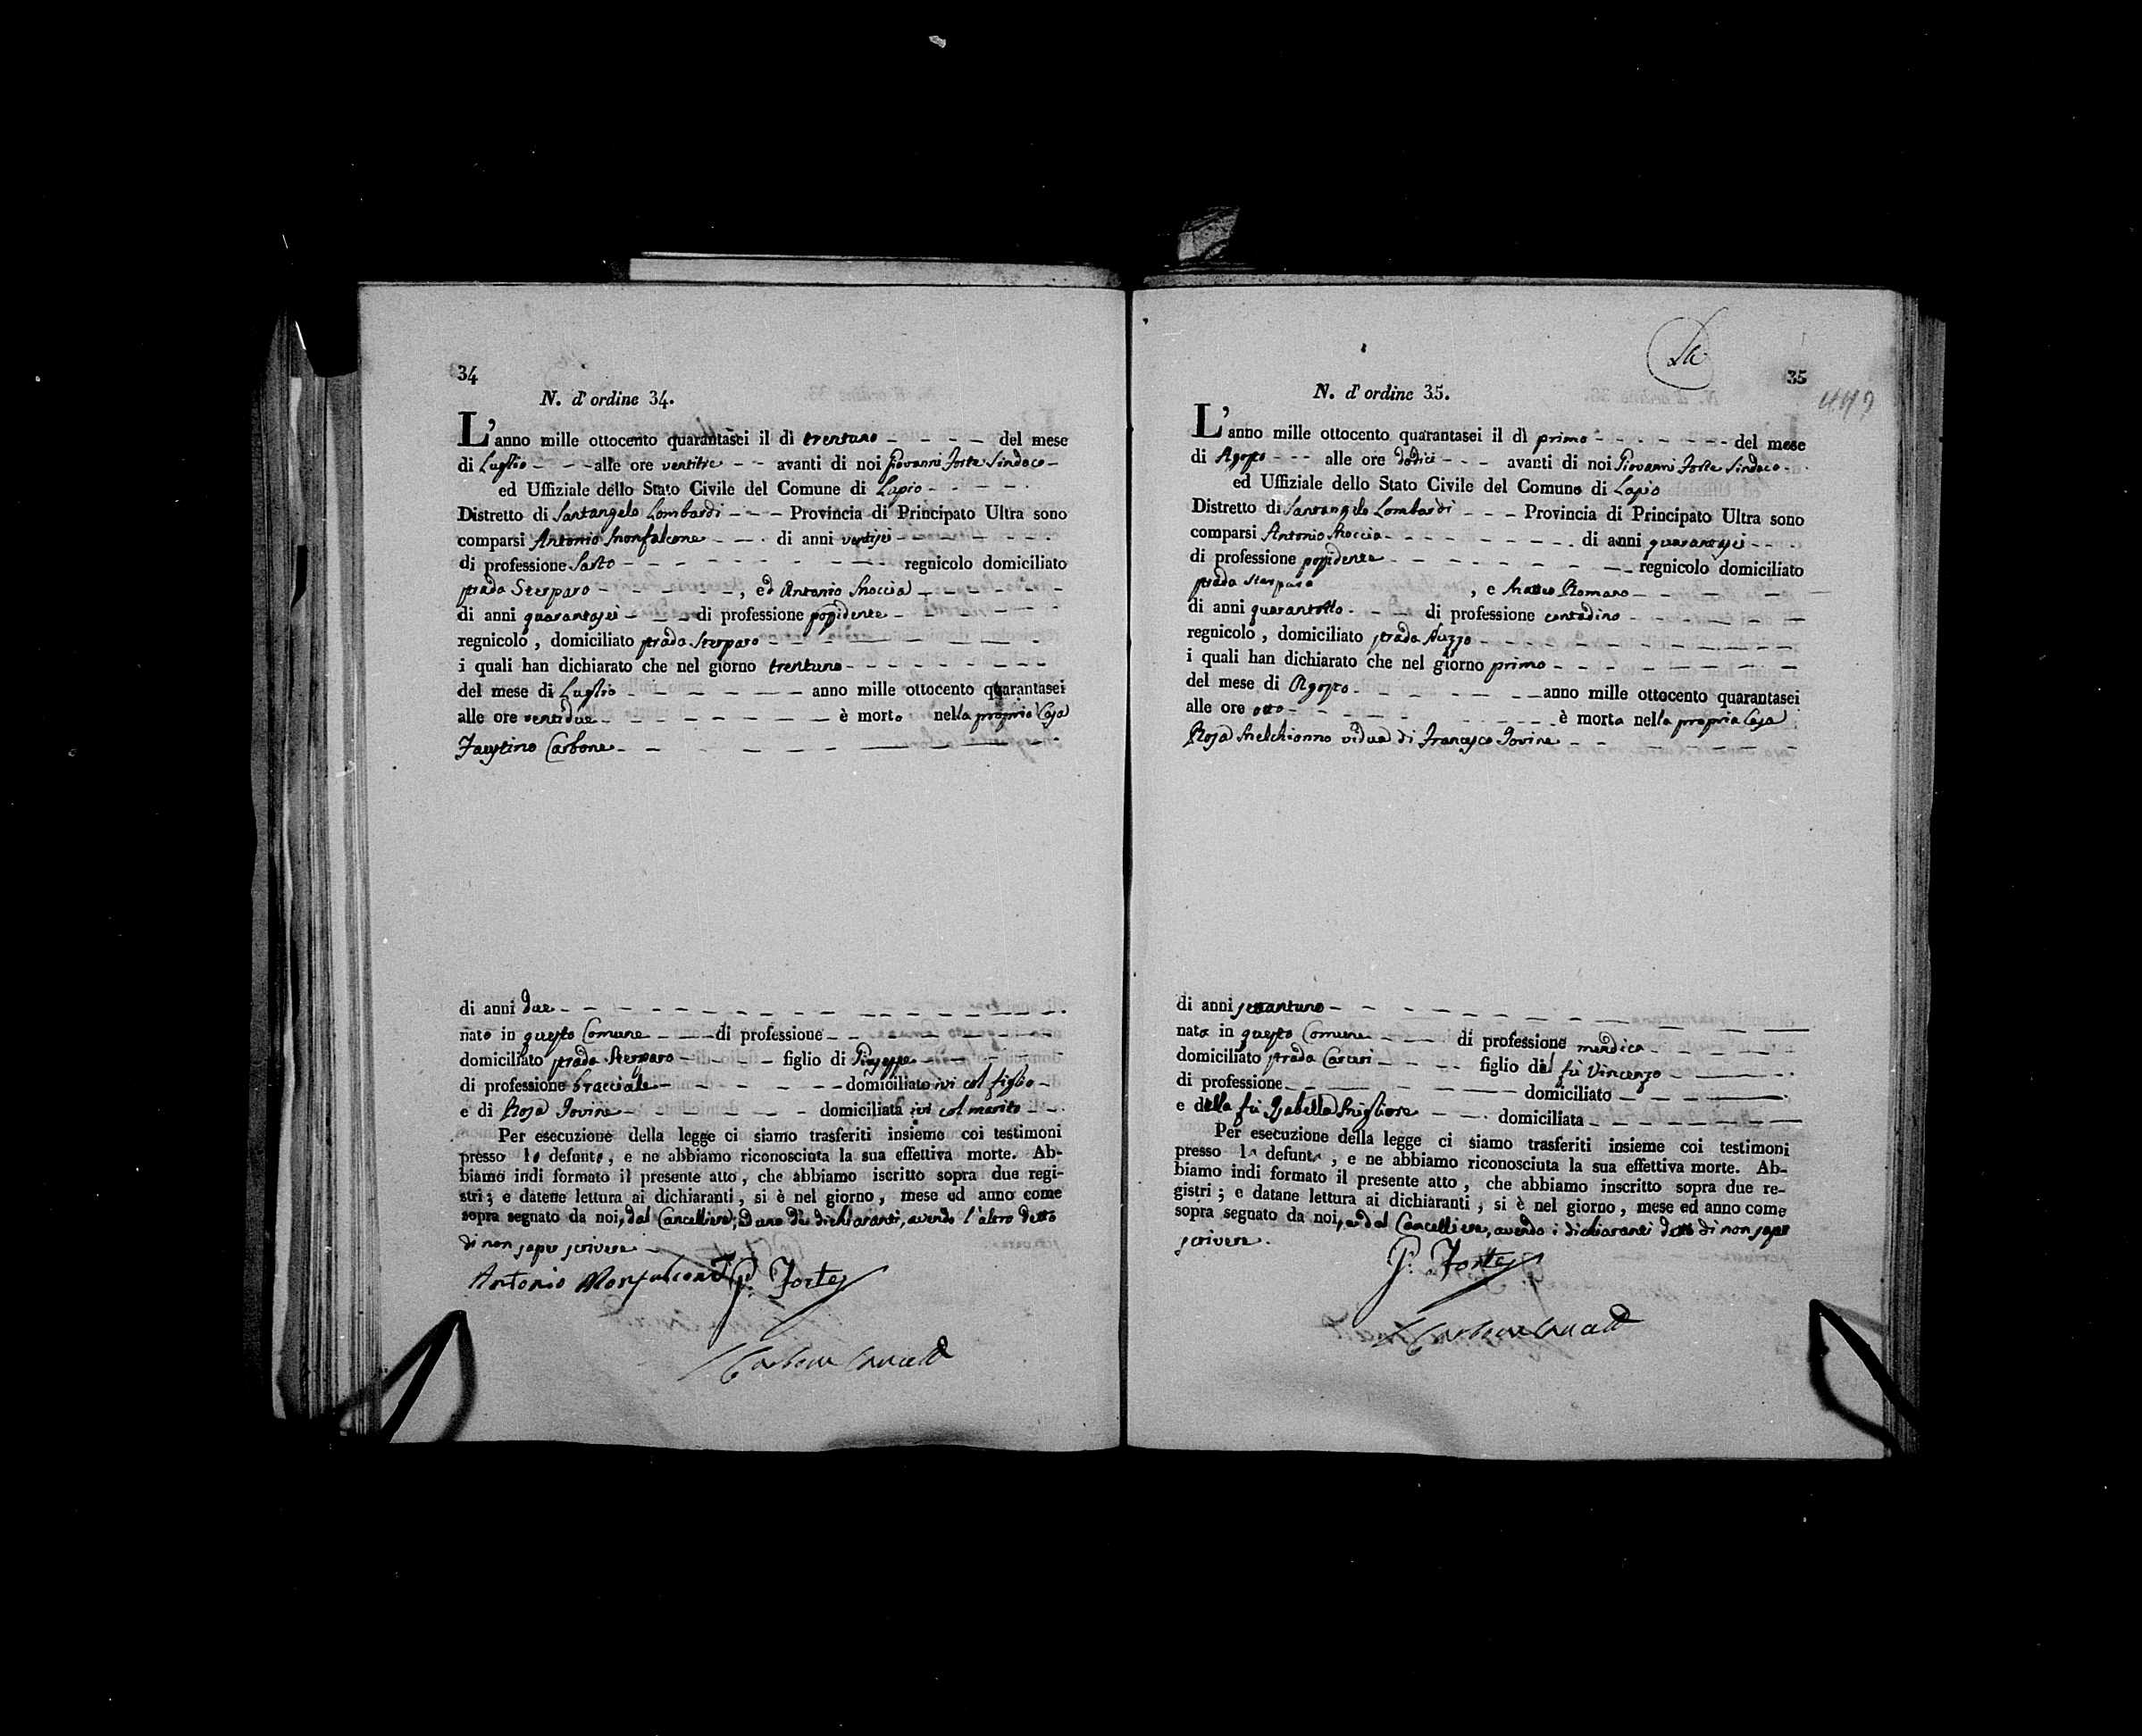 34
N. d'ordine 34.
L'anno mille ottocento quarantasei il dì trentuno - - - - del mese
di Luglio - - - alle ore ventitre - - avanti di noi Giovanni Forte Sindaco -
ed Uffiziale dello Stato Civile del Comune di Lapio - - - - -
Distretto di Santangelo Lombardi - - - Provincia di Principato Ultra sono
comparsi Antonio Monfalcone - - - di anni ventisei - - - - - -
di professione Sarto - - - - - - - - - regnicolo domiciliato
strada Sterparo - - - - - -, ed Antonio Moccia - - - - - -
di anni quarantasei - - - di professione possidente - - - - -
regnicolo, domiciliato strada Sterparo - - - - - - -
i quali han dichiarato che nel giorno trentuno - - - - - - - -
del mese di Luglio - - - - - - anno mille ottocento quarantasei
alle ore ventidue - - - - - - - - è morto nella propria Casa
Faustino Carbone - - - - - - - - -
di anni due - - - - - - - - - - - - - - - -
nato in questo Comune - - - di professione - - - - - -
domiciliato strada Sterparo - - - - figlio di Giuseppe - - - - -
di professione bracciale - - - - - - - domiciliato ivi col figlio -
e di Rosa Iovine - - - - - - domiciliata ivi col marito - -
Per esecuzione della legge ci siamo trasferiti insieme coi testimoni
presso lo defunto, e ne abbiamo riconosciuta la sua effettiva morte. Ab-
biamo indi formato il presente atto, che abbiamo iscritto sopra due regi-
stri; e datene lettura ai dichiaranti, si è nel giorno, mese ed anno come
sopra segnato da noi, dal Cancelliere, ed uno dei dichiaranti, avendo l'altro detto
di non saper scrivere -
Antonio Monfalcone G. Forte
35
N. d'ordine 35.
L'anno mille ottocento quarantasei il dì primo - - - - - - - del mese
di Agosto - - - alle ore dodici - - - avanti di noi Giovanni Forte Sindaco - -
ed Uffiziale dello Stato Civile del Comune di Lapio
Distretto di Santangelo Lombardi - - - Provincia di Principato Ultra sono
comparsi Antonio Moccia - - - - - - - - - di anni quarantasei - - -
di professione possidente - - - - - - - - - regnicolo domiciliato
strada Sterparo , e Matteo Romano - - - - -
di anni quarantotto - - - - di professione contadino - - - - - -
regnicolo, domiciliato strada - - - - - - - - - - -
i quali han dichiarato che nel giorno primo - - - - - - - -
del mese di Agosto - - - - - - - anno mille ottocento quarantasei
alle ore otto - - - - - - - - - è morta nella propria Casa
Rosa Melchionno vidua di Francesco Iovine - - - - - -
di anni settantuno - - - - - - - - - - - - -
nata in questo Comune - - - - di professione mendica - - - - -
domiciliato strada Carceri - - - - figlio del fù Vincenzo - - - -
di professione - - - - - - - domiciliato - - - - -
e della fù Isabella Migliore - - - domiciliata - - - - - - -
Per esecuzione della legge ci siamo trasferiti insieme coi testimoni
presso la defunta, e ne abbiamo riconosciuta la sua effettiva morte. Ab-
biamo indi formato il presente atto, che abbiamo inscritto sopra due re-
gistri; e datane lettura ai dichiaranti, si è nel giorno, mese ed anno come
sopra segnato da noi, e dal Cancelliere, avendo i dichiaranti detto di non saper
scrivere.
G. Forte